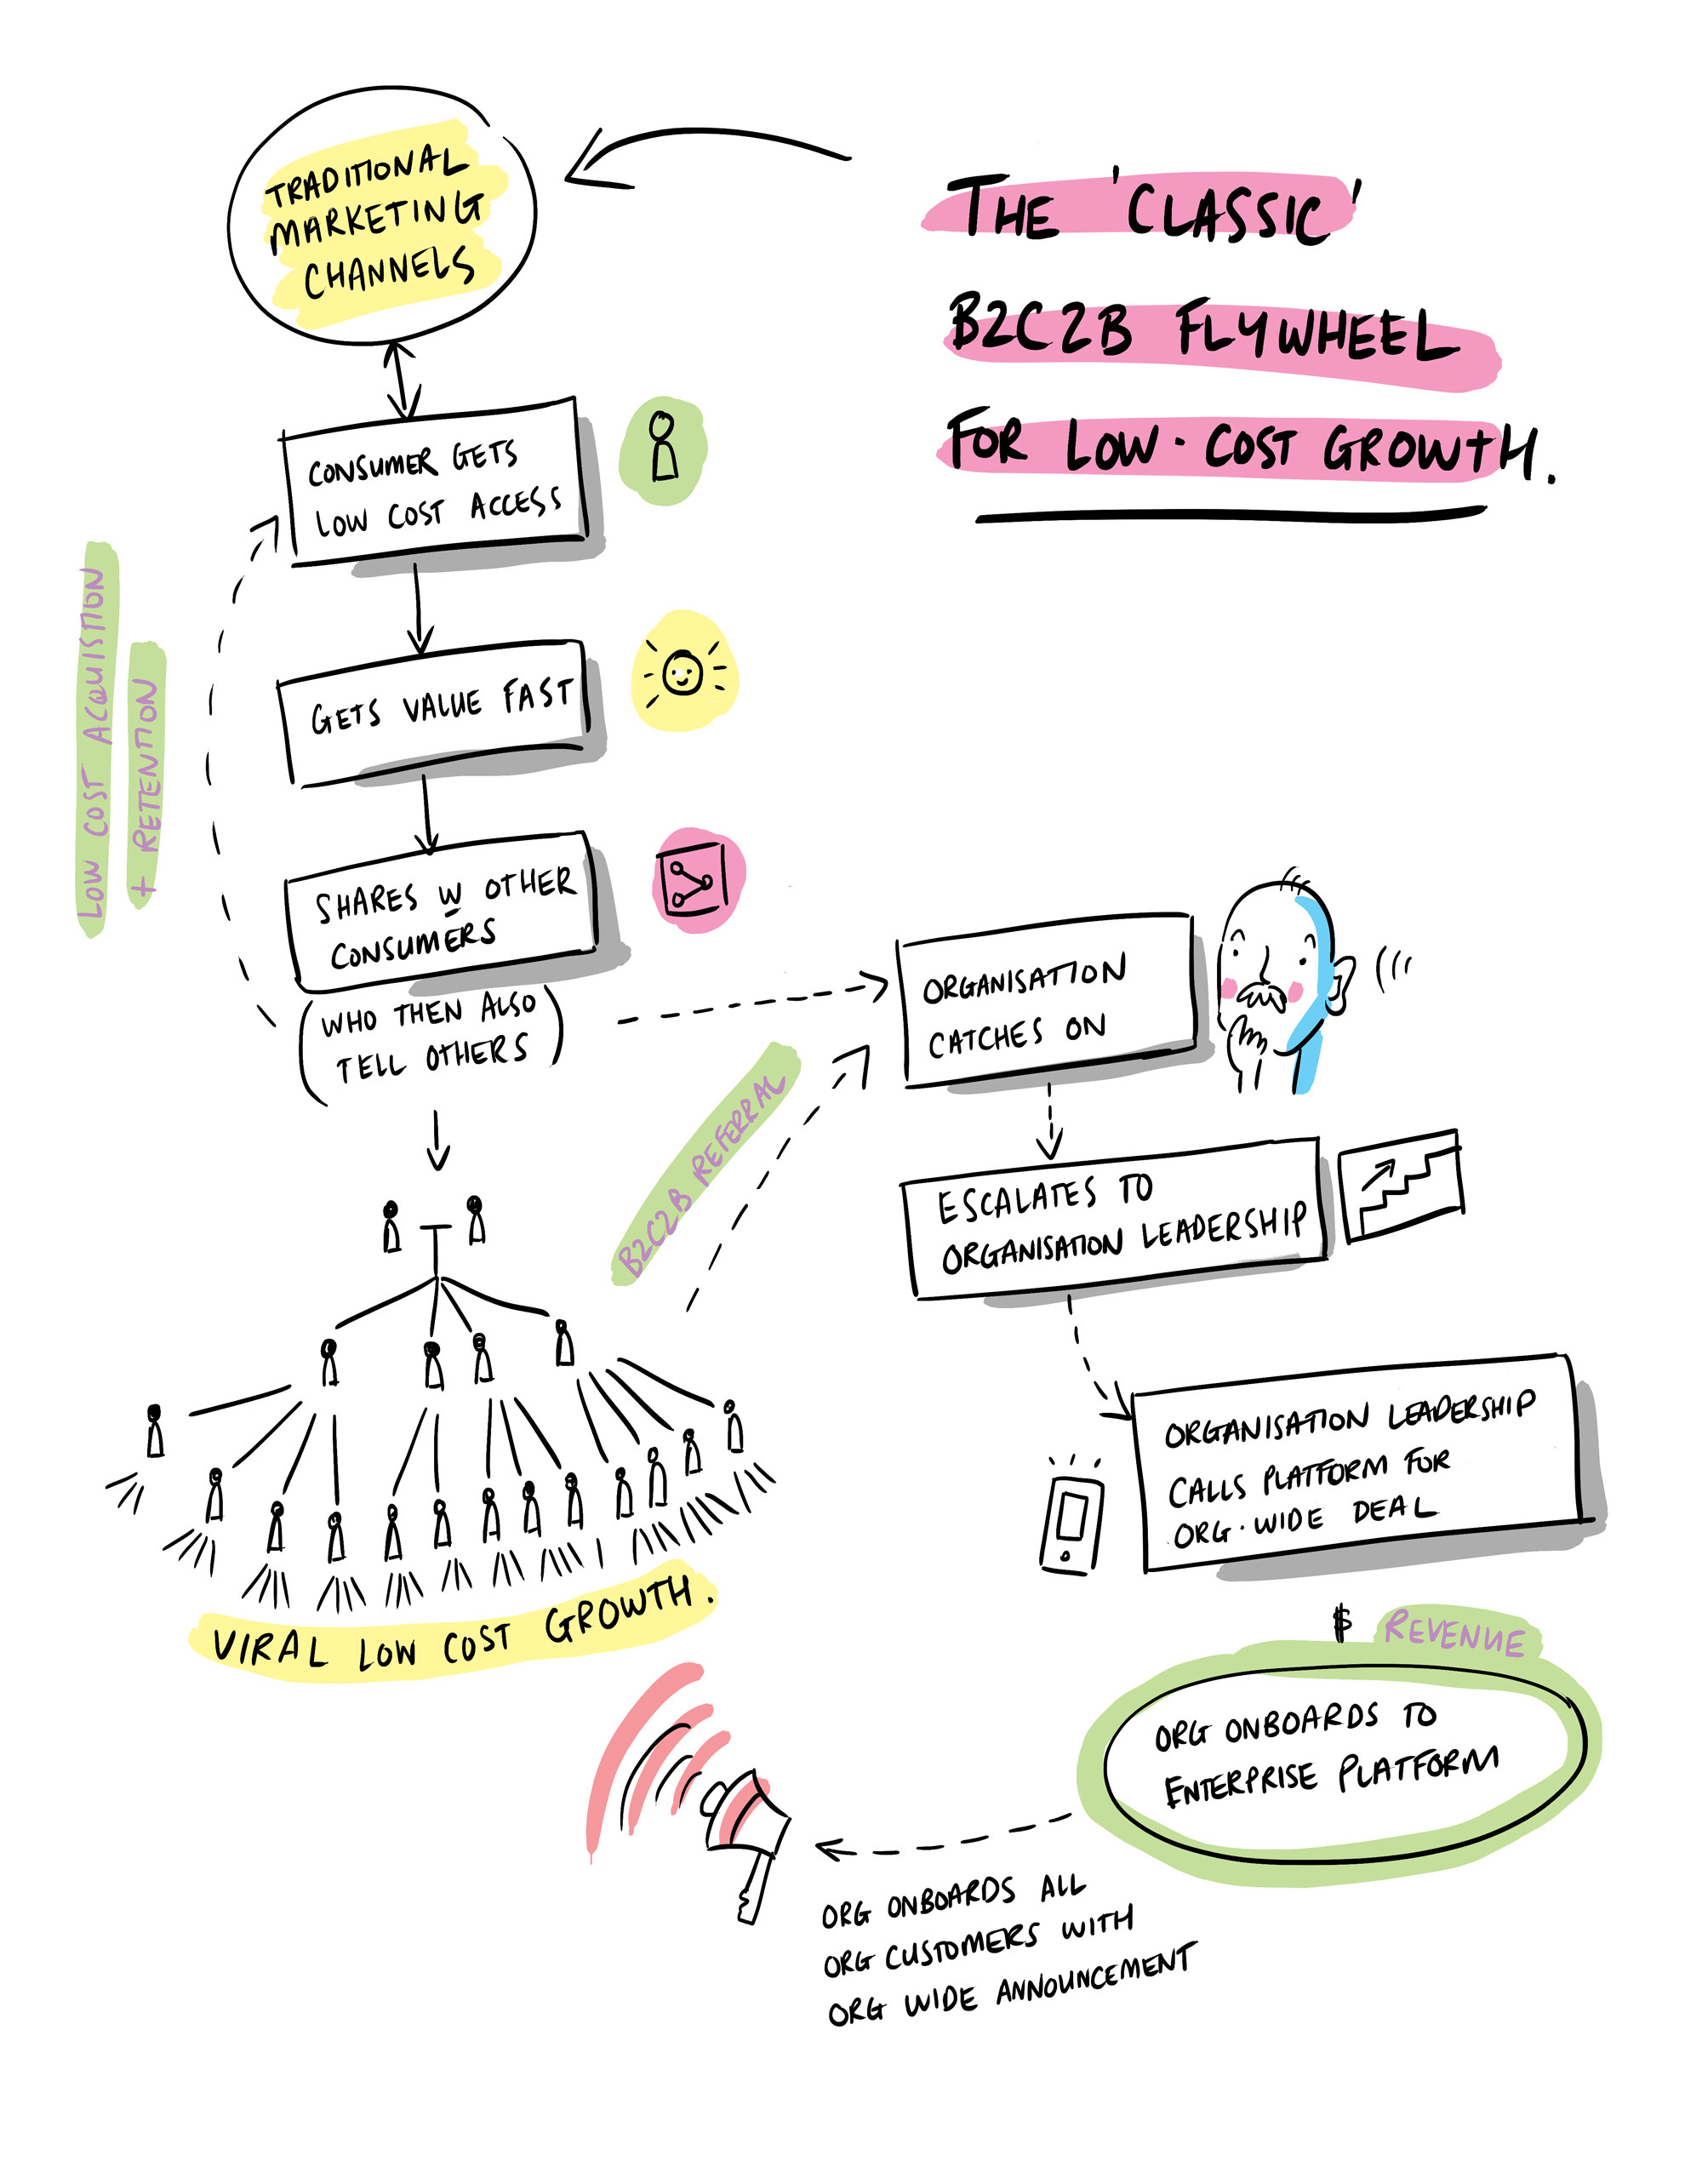 TRADITIONAL
MARKETING
CHANNELS
THE 'CLASSIC'
B2C2B FLYWHEEL
FOR LOW·COST GROWTH.
CONSUMER GETS
LOW COST ACCESS
LOW COST ACQUISITION
+ RETENTION
GETS VALUE FAST
SHARES W OTHER
CONSUMERS
(WHO THEN ALSO
TELL OTHERS)
ORGANISATION
CATCHES ON
B2C2B REFERRAL
ESCALATES TO
ORGANISATION LEADERSHIP
ORGANISATION LEADERSHIP
CALLS PLATFORM FOR
ORG·WIDE DEAL
VIRAL LOW COST GROWTH.
$ REVENUE
ORG ONBOARDS TO
ENTERPRISE PLATFORM
ORG ONBOARDS ALL
ORG CUSTOMERS WITH
ORG WIDE ANNOUNCEMENT